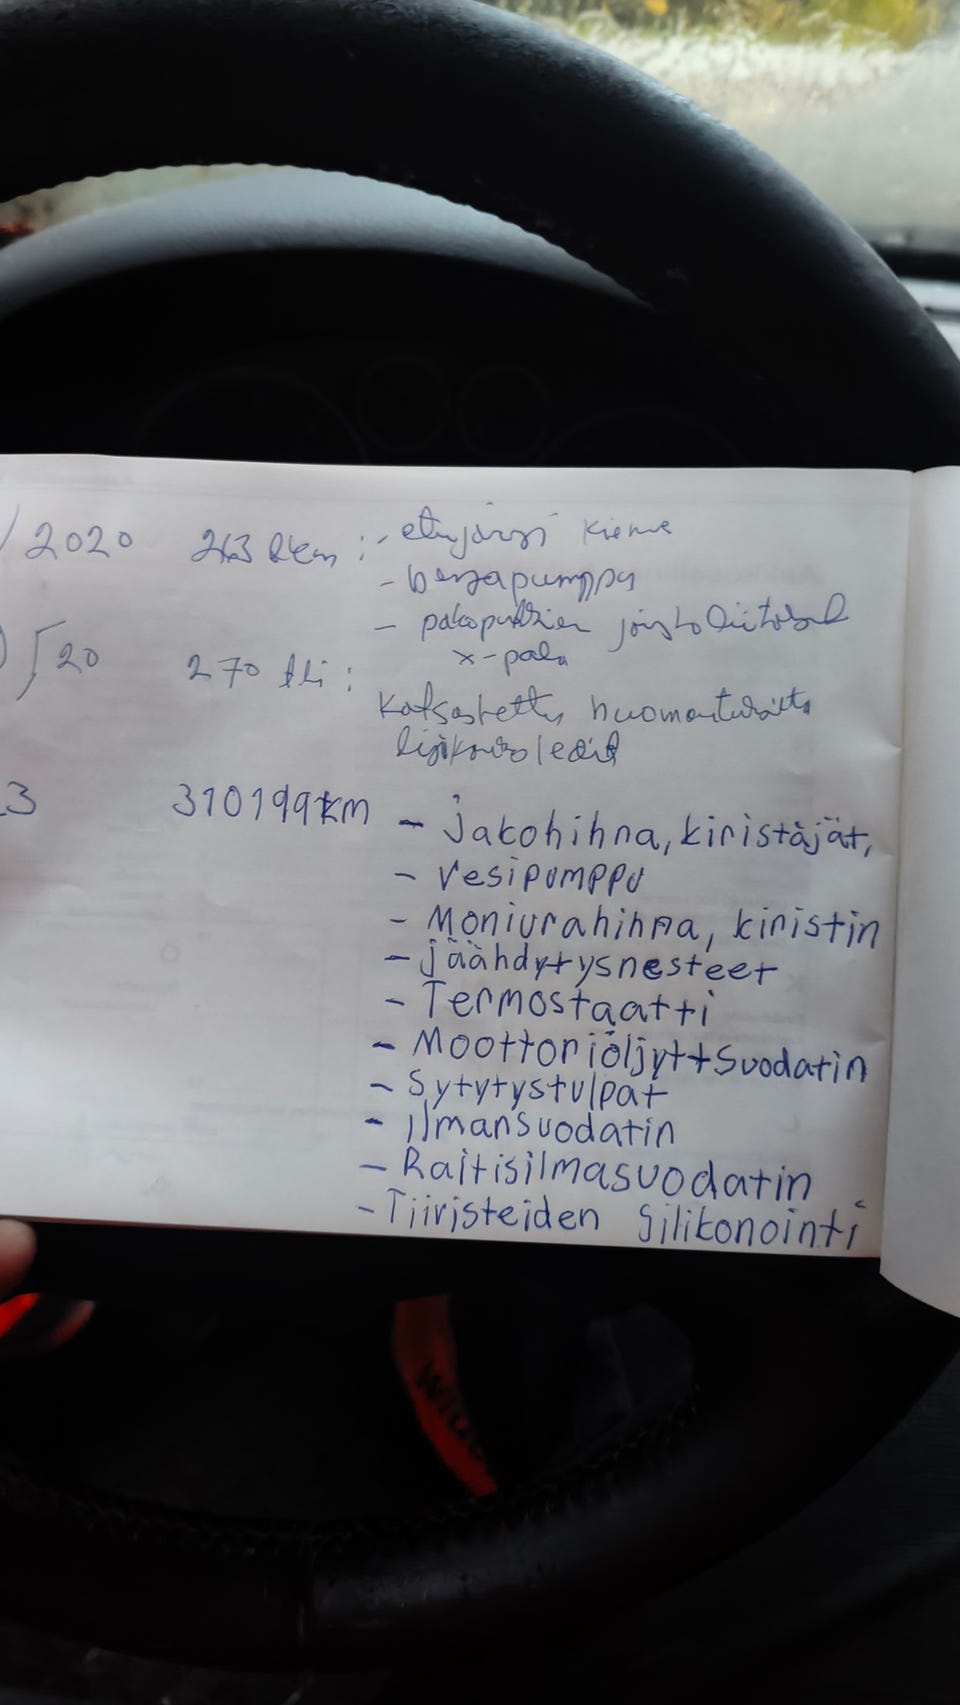 /2020 263 tkm : - etujousi kierre
- bensapumppu
- pakoputkien joustoliitokset
x-pala
/20 270 tki :
Katsastettu huomautuksitta
310199km - Jakohihna, kiristäjät,
- Vesipumppu
- Moniurahihna, kiristin
- Jäähdytysnesteet
- Termostaatti
- Moottoriöljyt+Suodatin
- Sytytystulpat
- Ilmansuodatin
- Raitisilmasuodatin
- Tiivisteiden Silikonointi